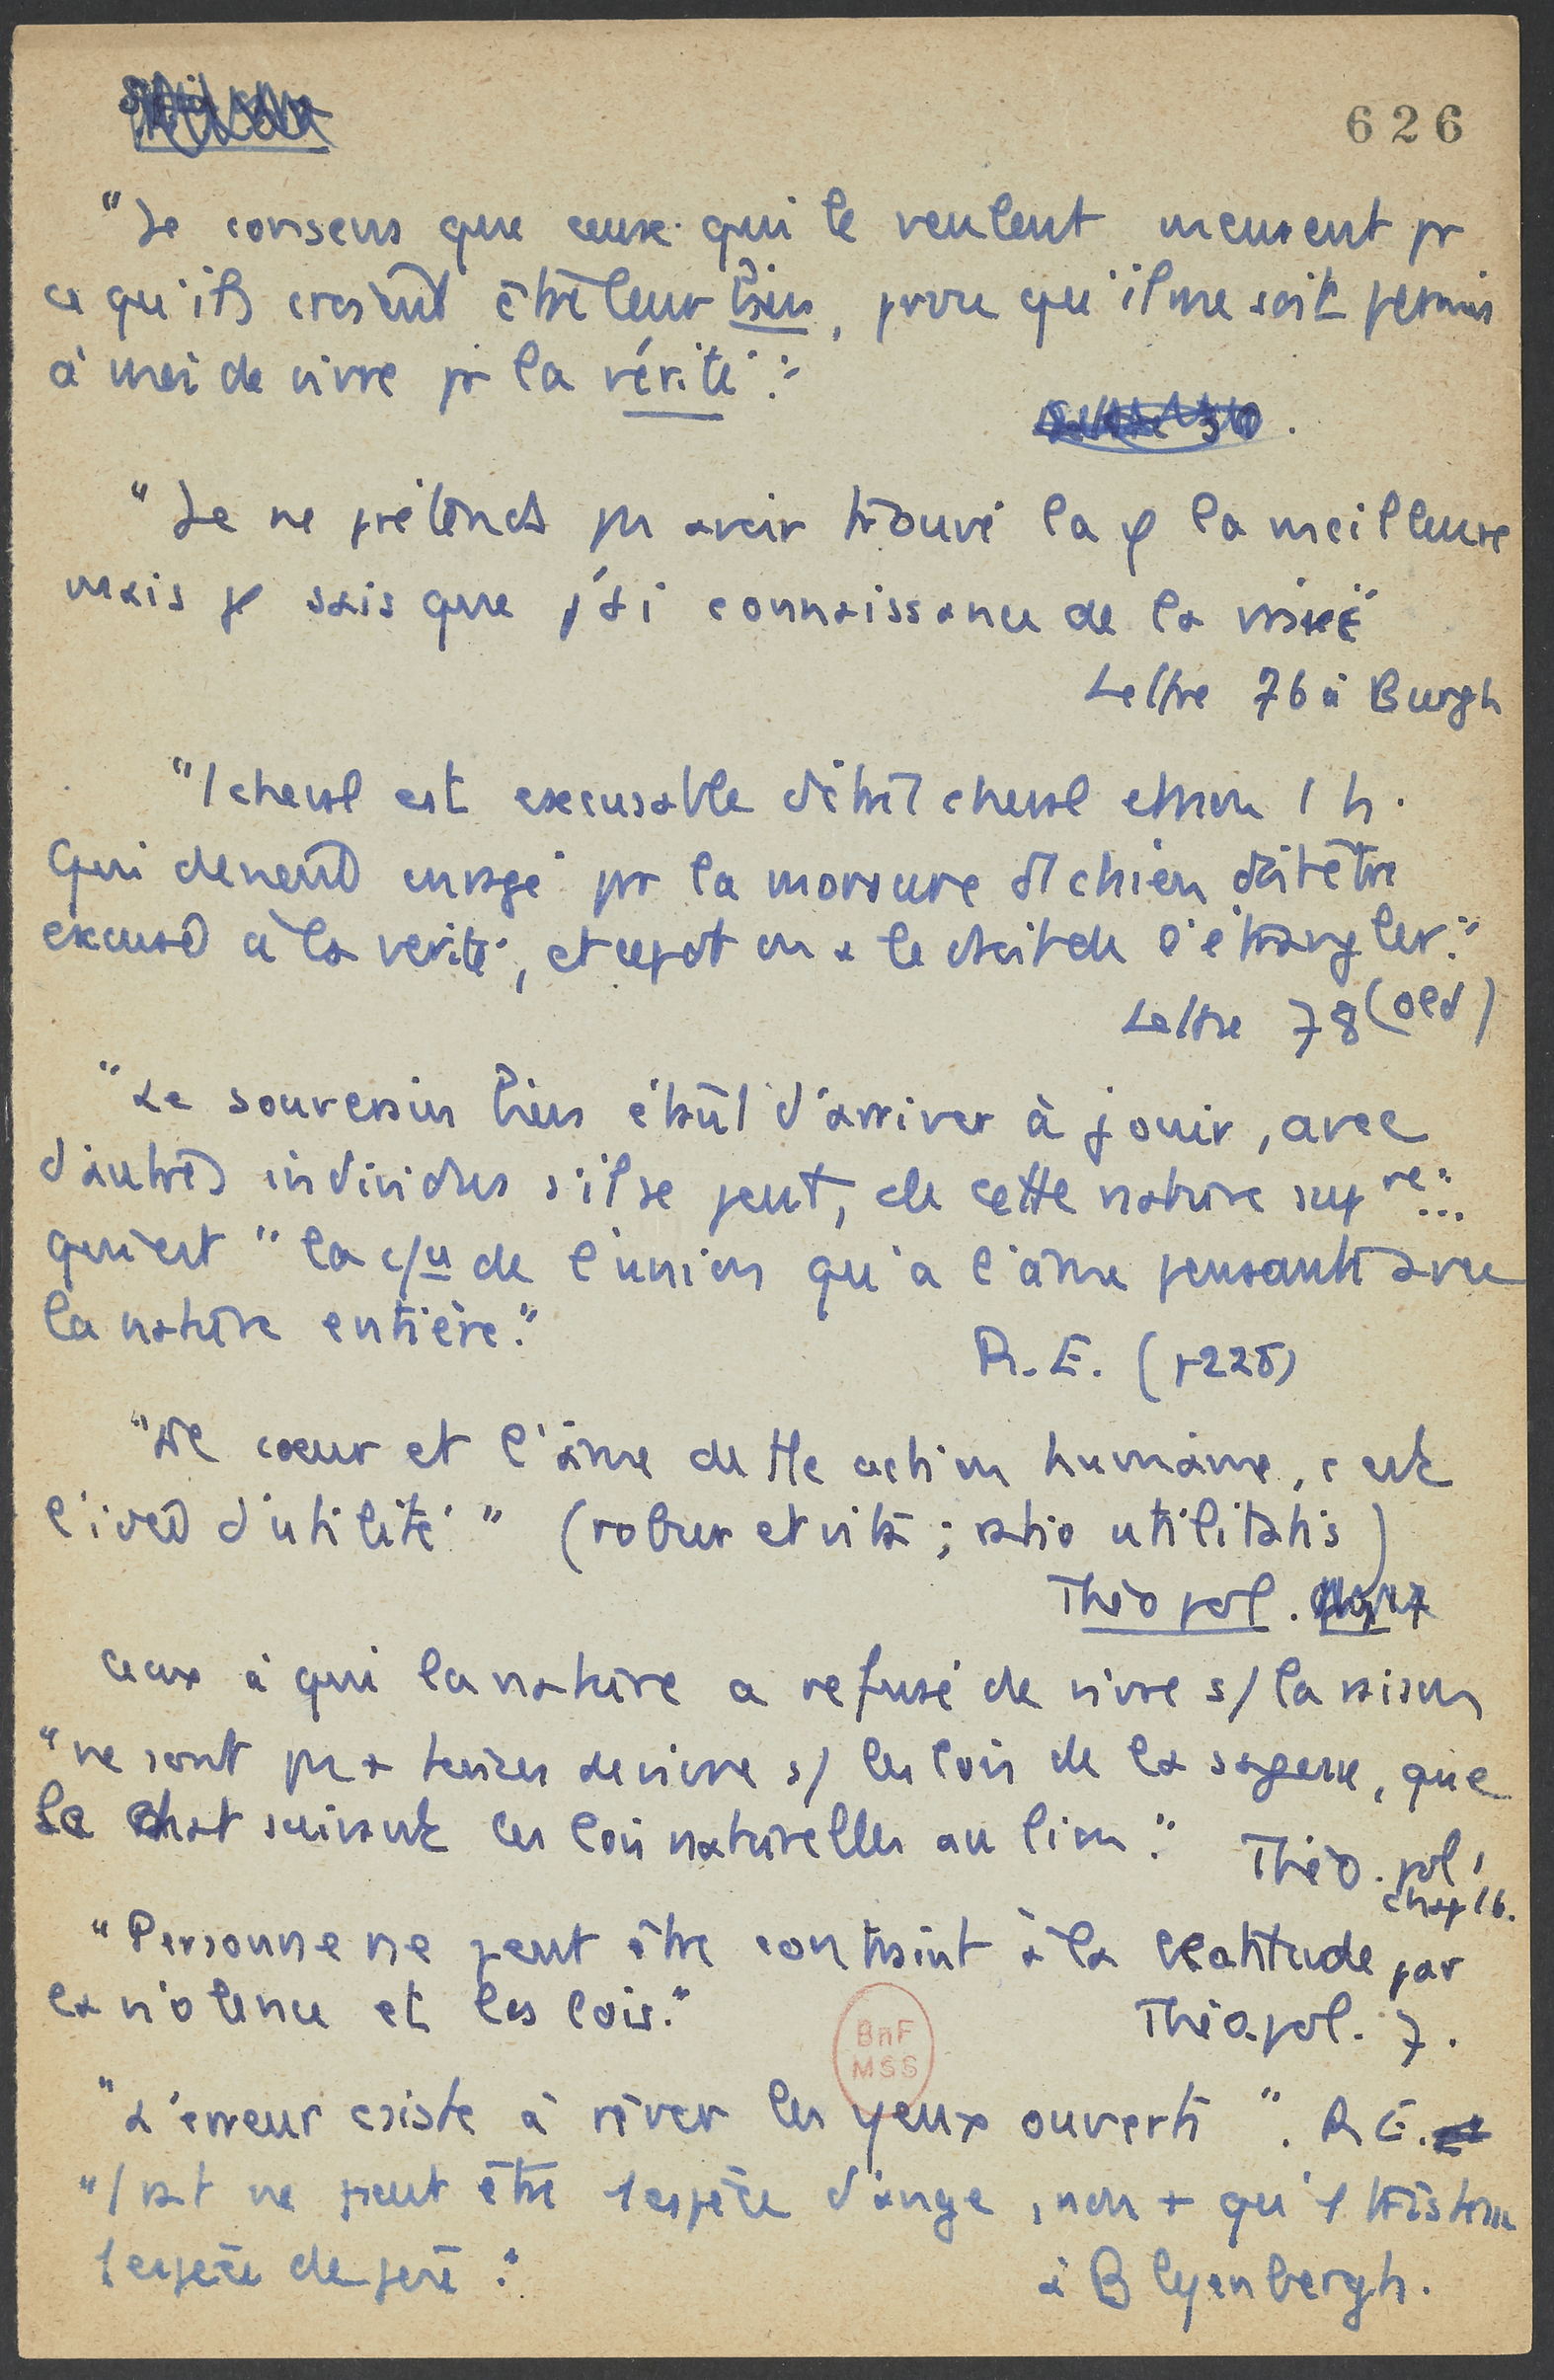 626
"Je consens que ceux qui le veulent meurent pr
ce qu'ils croient être leur bien, pourvu qu'il me soit permis
à moi de vivre pr la vérité."
"Je ne prétends pas avoir trouvé la φ la meilleure
mais je sais que j'ai connaissance de la vraie"
Lettre 76 à Burgh
"1 cheval est excusable d'être cheval et non 1 h.
Qui devient enragé par la morsure d'1 chien doit être
excusé à la vérité, et cepdt on a le droit de l'étrangler."
Lettre 78 (Old)
"Le souverain bien étant d'arriver à jouir, avec
d'autres individus s'il se peut, de cette nature supre"...
qui est "la c/ce de l'union qu'a l'âme pensante avec
la nature entière."
R.E. (p 225)
"Le cœur et l'âme de tte action humaine, c'est
l'idée d'utilité" (robur et vita ; ratio utilitatis)
Théo pol.
ceux à qui la nature a refusé de vivre s/ la raison
"ne sont pas + tenus de vivre s/ les lois de la sagesse, que
le chat suivant les lois naturelles au lion." Théo. pol,
chap 16.
"Personne ne peut être contraint à la béatitude par
la violence et les lois."
Théo. pol. 7.
BnF
MSS
"L'erreur consiste à rêver les yeux ouverts". R E.
"1 rat ne peut être 1 espèce d'ange, non + qu'1 tristesse
1 espèce de joie."
à Blyenbergh.